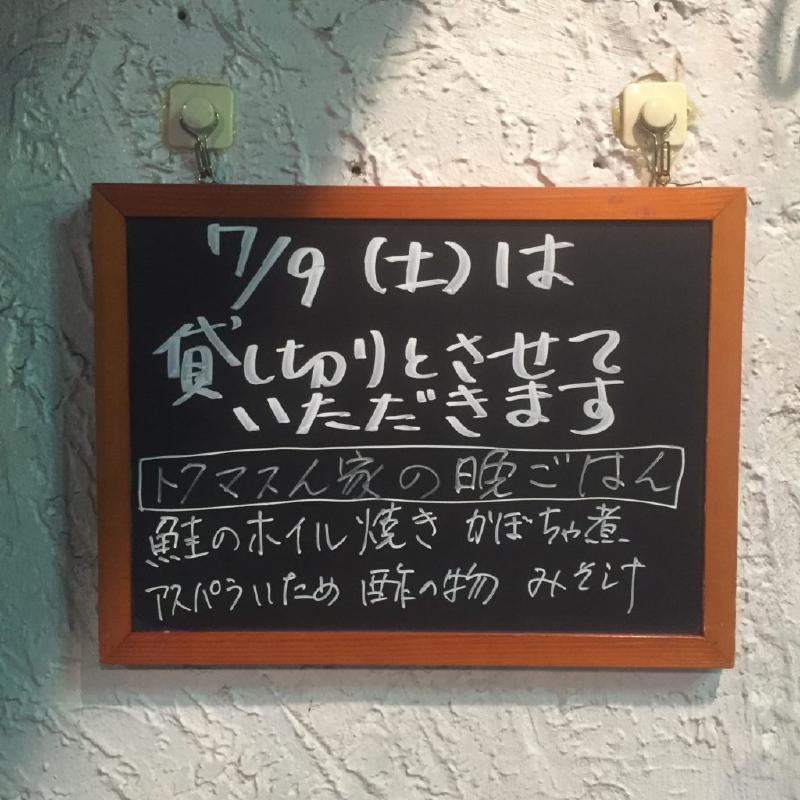 7/9(土)は
貸し切りとさせて
いただきます
トクマスん家の晩ごはん
鮭のホイル焼き かぼちゃ煮
アスパラいため 酢の物 みそ汁